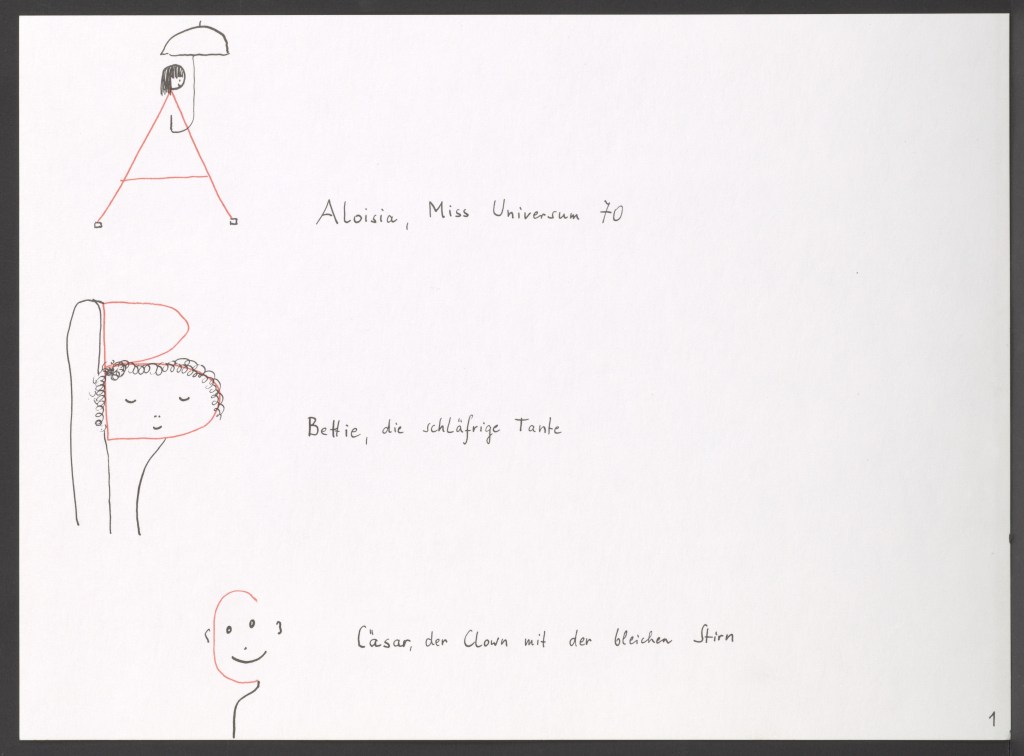 Aloisia, Miss Universum 70
Bettie, die schläfrige Tante
Cäsar, der Clown mit der bleichen Stirn
1